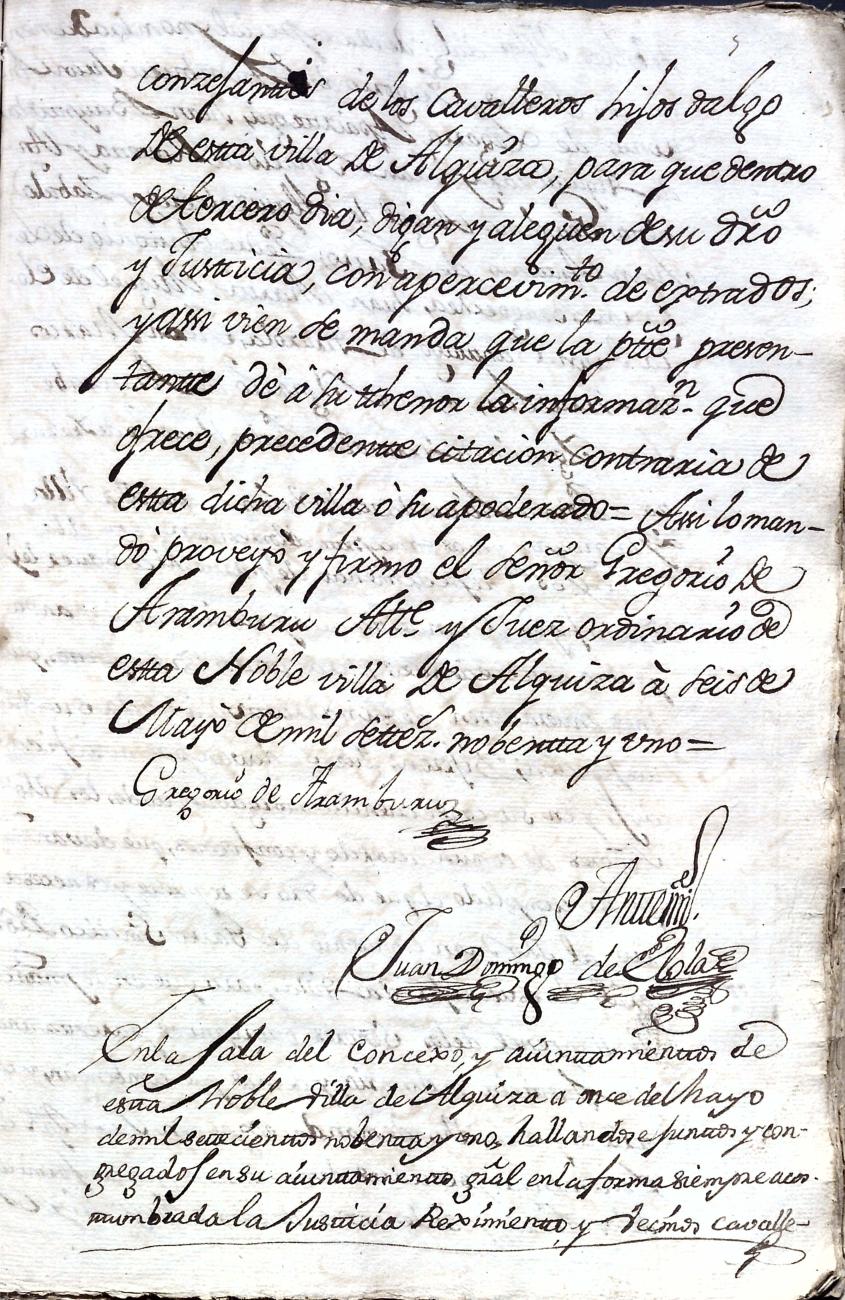 conzesantes de los Cavalleros hijos dalgo
De estta villa De Alquiza, para que dentro
de tercero dia, digan y aleguen de su dro
y Justicia, con apercevimto. de extrados;
y assi vien se manda que la ptte presen-
tantte dè à su tthenor la informazn. que
ofrece, precedentte citacion contraria de
estta dicha villa ò su apoderado= Assi lo man-
dò proveyò y firmo el Señor Gregorio De
Aramburu Altte. y Juez ordinario de
estta Noble villa De Alquiza à seis de
Mayo de mil settez. nobentta y vno=
Gregorio de Aramburu
Anttemi.
Juan Domingo de
En la Sala del Concexo, y aiunttamienttos de
estta Noble Villa de Alquiza a once de Mayo
de mil settecienttos nobentta y vno, hallandose junttos y con-
gregados en su aiunttamientto gral en la forma siempre acos-
ttumbrada la Justticia Reximientto, y vecinos cavalle-